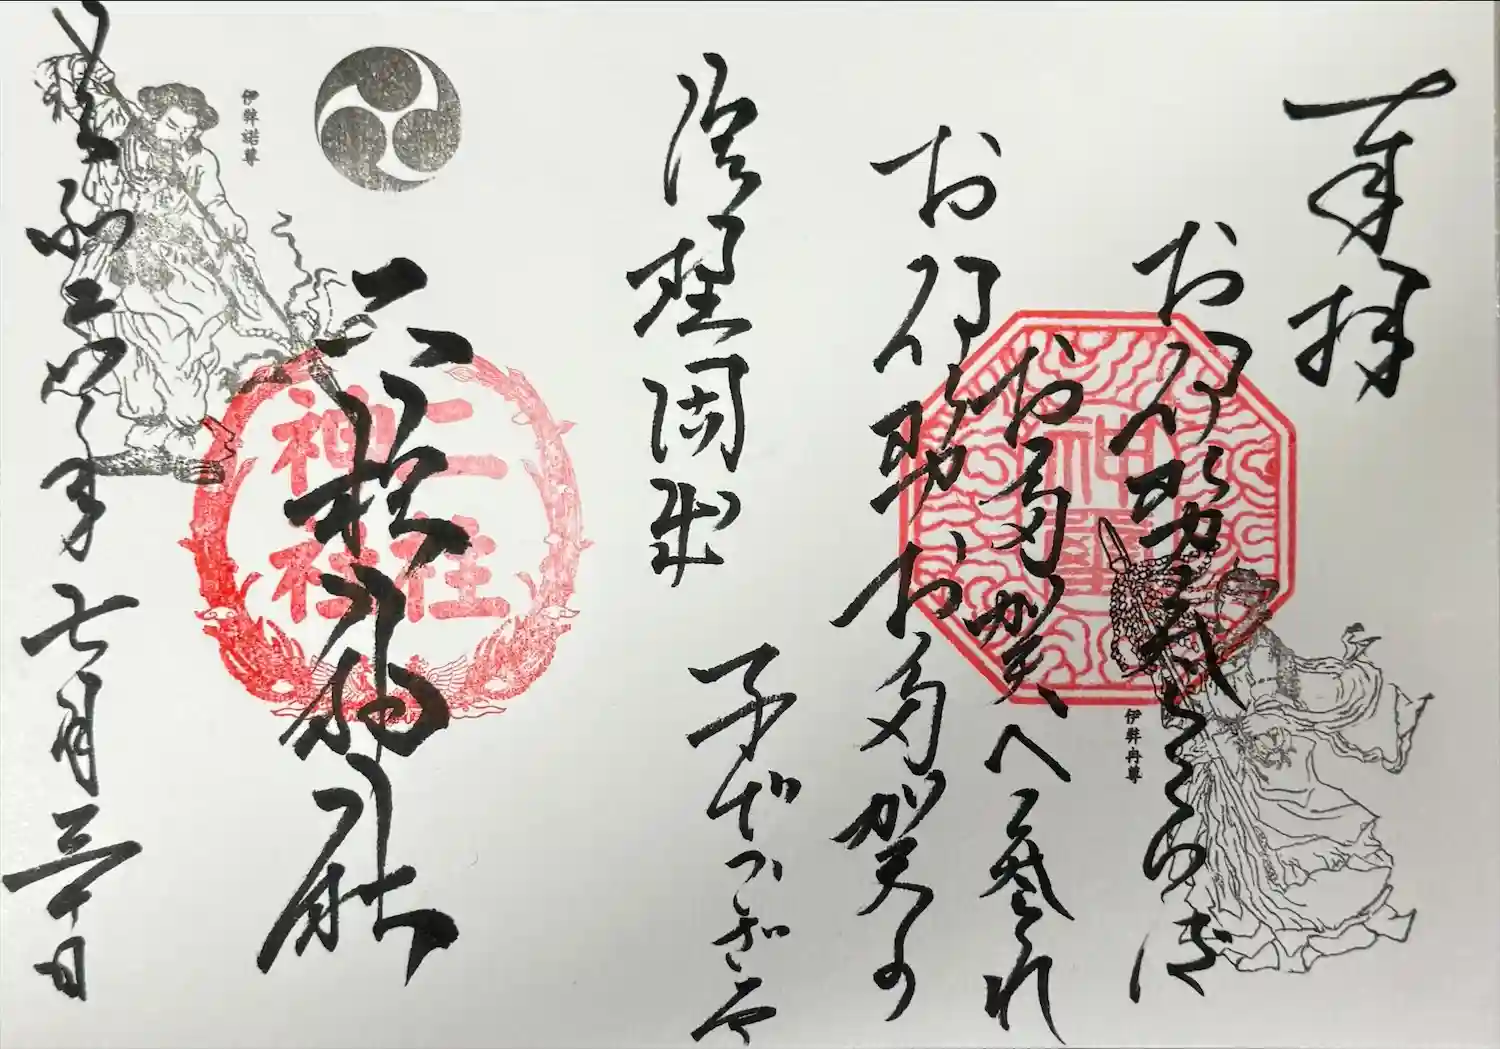 奉拝
お伊勢参らば
お多賀へ参れ
お伊勢お多賀の
修理固成 子でござる
二柱神社
二柱
神社
伊弉諾尊
伊弉冉尊
令和六年七月三十日